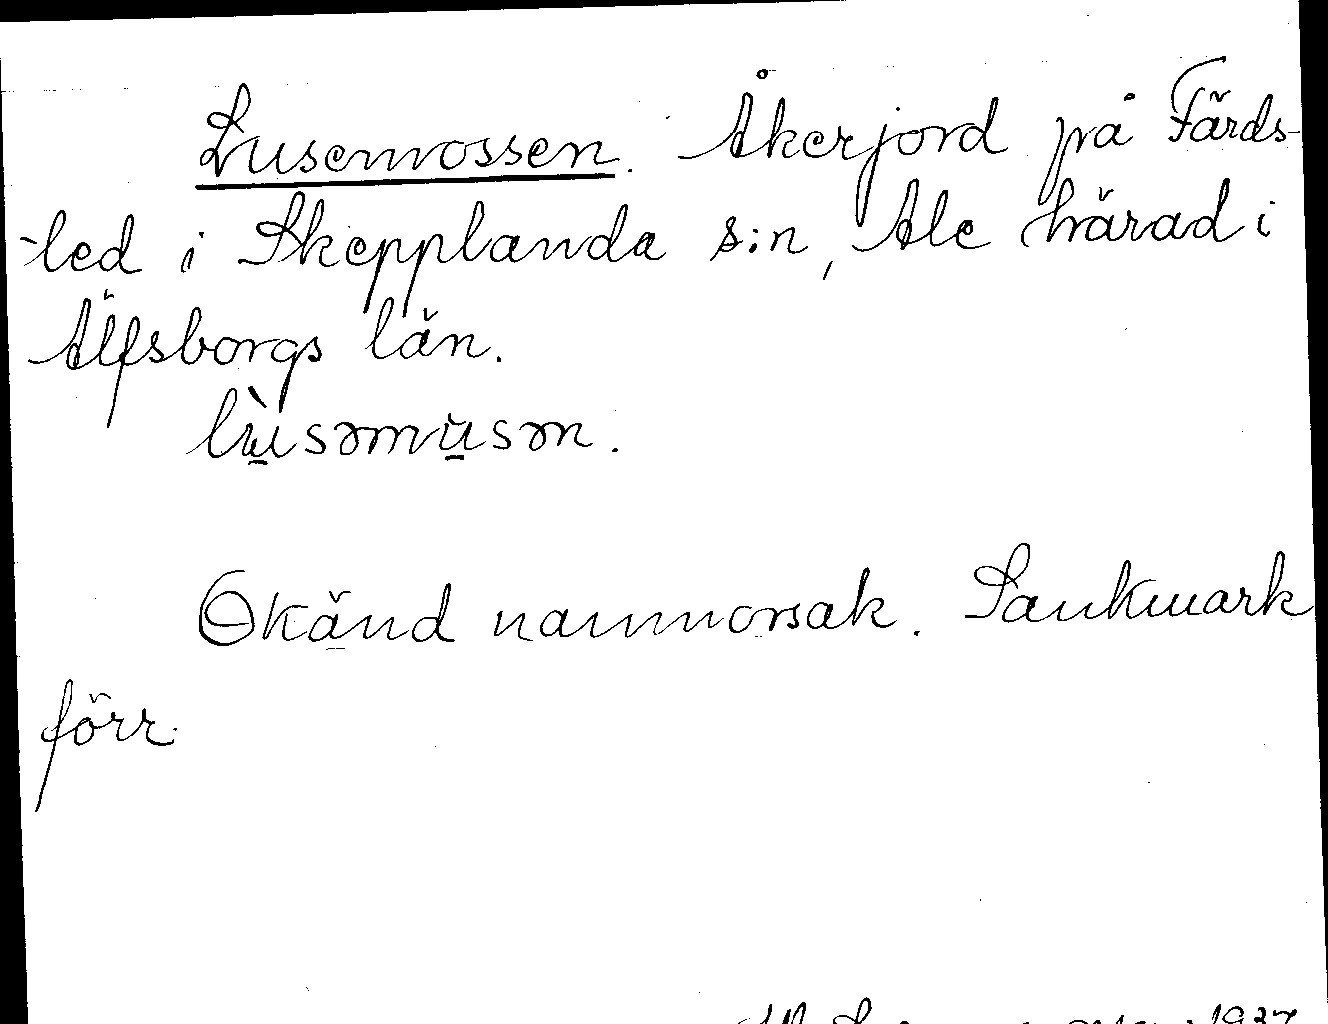 Lusemossen. Åkerjord på Färds-
led i Skepplanda s:n, Ale härad i
Älfsborgs län.
lùsəmusən.
Okänd namnorsak. Sankmark
förr.
1937